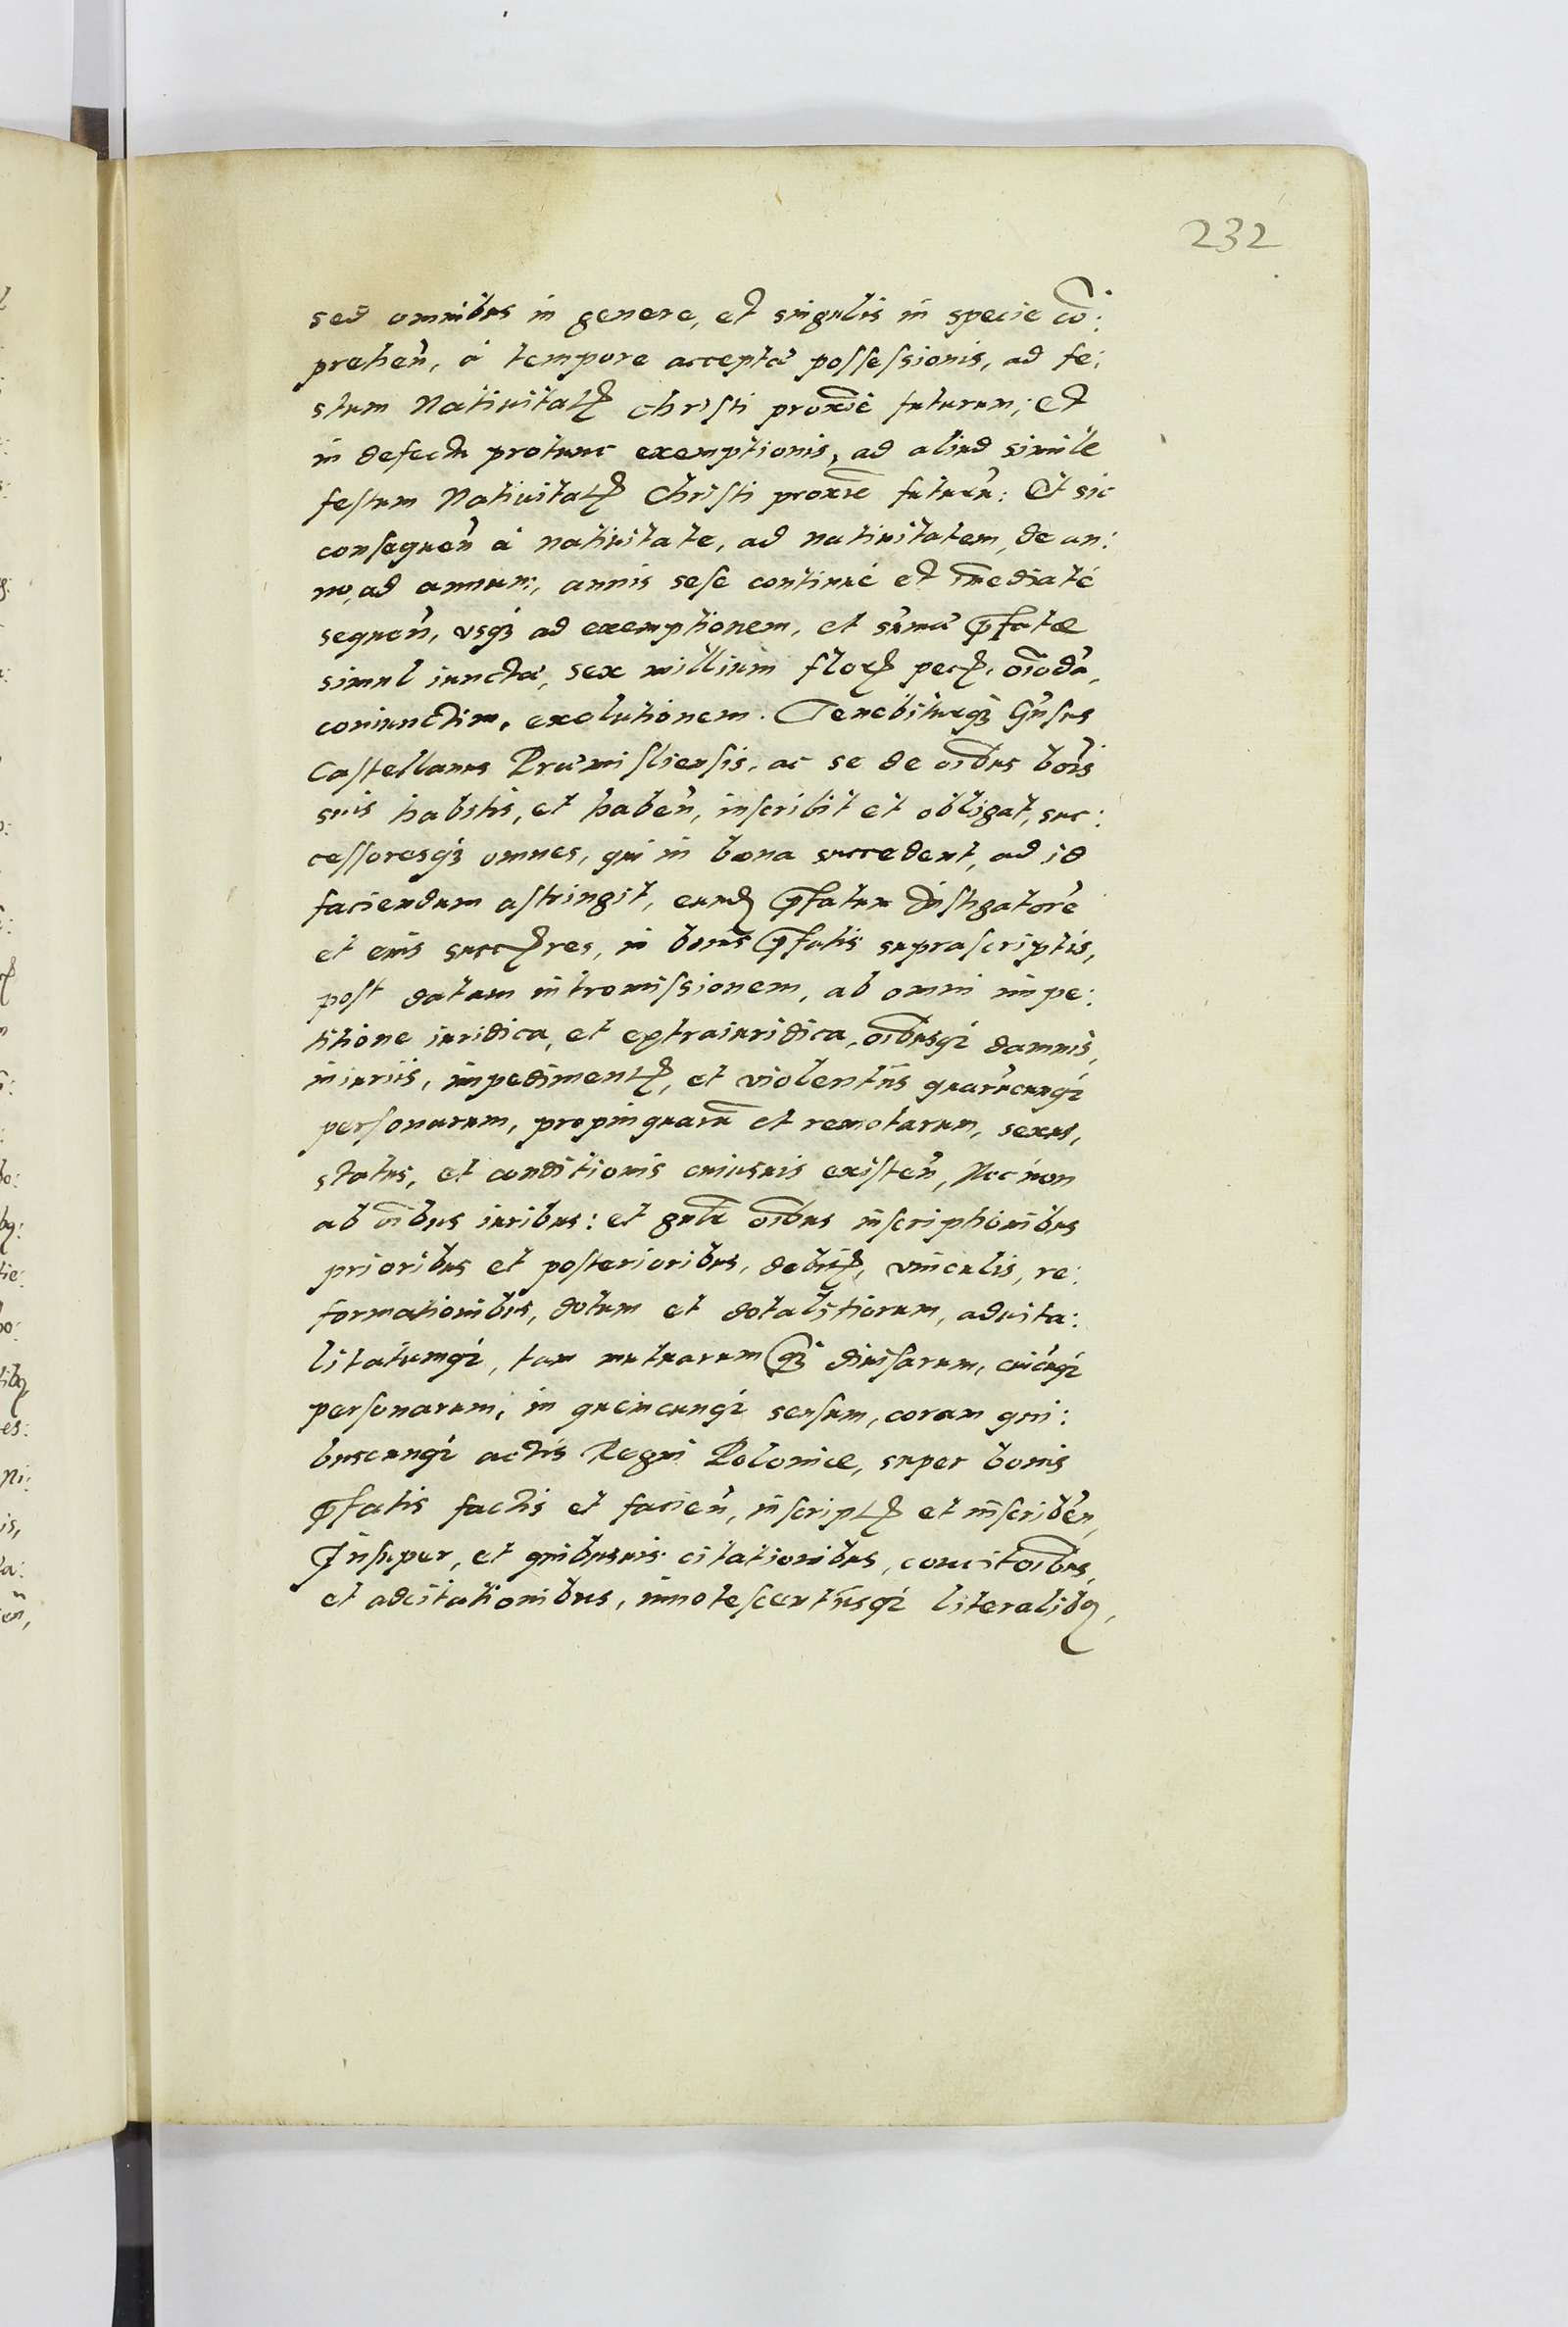 232
sed omnibus in genere, et singulis in specie cō:
prehen̄, à tempore acceptæ possessionis, ad fe:
stum Natiuitatꝭ Christi proxīe futurum; Et
in defectu protunc exemptionis, ad aliud simile
festum Natiuitatꝭ Christi proxīe futurū: Et sic
consequen̄ à natiuitate, ad natiuitatem, de an:
no, ad annum, annis sese continuè et im̄ediatè
sequen̄, vsqꝫ ad exemptionem, et sum̄æ p̄fatæ
simul iunctæ, sex millium florꝭ pecꝭ, oīoda,
coniunctim, exolutionem. Tenebiturqꝫ Gn̄sus
Castellanus Præmisliensis, ac se de oībus bōis
suis habitis, et haben̄, inscribit et obligat, suc:
cessoresqꝫ omnes, qui in bona succedent, ad id
faciendum astringit, eundꝭ p̄fatum Instigatorē
et eius succꝭres, in bonis p̄fatis suprascriptis,
post datam intromissionem, ab omni impe:
titione iuridica, et extraiuridica, oībusqꝫ damnis,
iniuriis, impedimentꝭ, et violentiis quarūcunqꝫ
personarum, propinquarū et remotarum, sexus,
status, et conditionis cuiusuis existen̄, Nec non
ab oībus iuribus: et gnl̄r oībus inscriptionibus
prioribus et posterioribus, debitꝭ, vinculis, re:
formationibus, dotum et dotalitiorum, aduita:
litatumqꝫ, tam mutuarum qꝫ diuisarum, cuicūqꝫ
personarum, in quemcunqꝫ sensum, coram qui:
buscunqꝫ actis Regni Poloniæ, super bonis
p̄fatis factis et facien̄, inscriptꝭ et inscriben̄,
Insuper, et quibusuis citationibus, concitoībus,
et adcitationibus, innotescentiisqꝫ literalibꝫ,